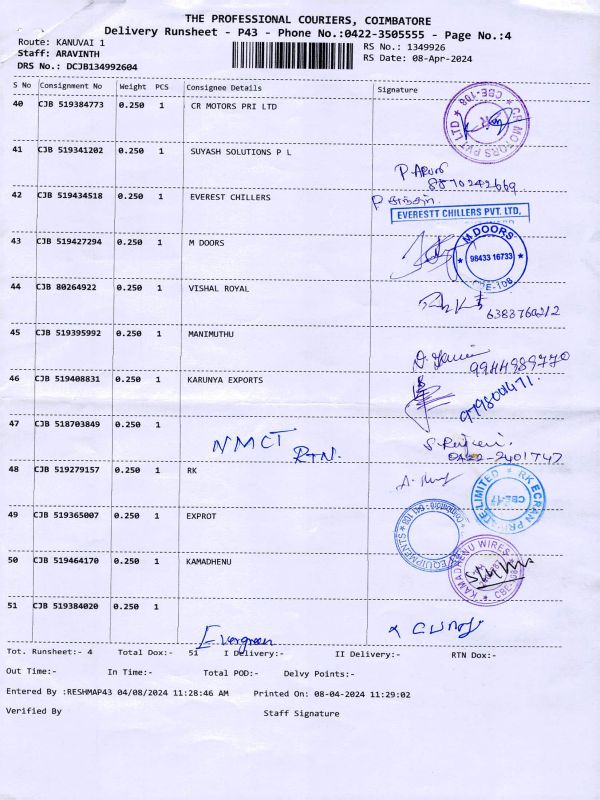 THE PROFESSIONAL COURIERS, COIMBATORE
Delivery Runsheet - P43 - Phone No.:0422-3505555 - Page No.:4
Route: KANUVAI 1
RS No.: 1349926
Staff: ARAVINTH
RS Date: 08-Apr-2024
DRS No.: DCJB134992604
S No Consignment No Weight PCS Consignee Details Signature
40 CJB 519384773 0.250 1 CR MOTORS PRI LTD
C.R. MOTORS PVT LTD * CBE-108 *
41 CJB 519341202 0.250 1 SUYASH SOLUTIONS P L
8870242669
42 CJB 519434518 0.250 1 EVEREST CHILLERS
EVERESTT CHILLERS PVT. LTD.
43 CJB 519427294 0.250 1 M DOORS
M DOORS
98433 16733
CBE-108
44 CJB 80264922 0.250 1 VISHAL ROYAL
6383760212
45 CJB 519395992 0.250 1 MANIMUTHU
9944989770
46 CJB 519408831 0.250 1 KARUNYA EXPORTS
47 CJB 518703849 0.250 1
NMCT RTN.
0422-2401747
48 CJB 519279157 0.250 1 RK
RK ECRAN PRIVATE LIMITED
CBE-17
49 CJB 519365007 0.250 1 EXPROT
EQUIPMENTS * Coimbatore - 641 108
50 CJB 519464170 0.250 1 KAMADHENU
KAMADHENU WIRES
51 CJB 519384020 0.250 1
Evergreen
Tot. Runsheet:- 4 Total Dox:- 51 I Delivery:- II Delivery:- RTN Dox:-
Out Time:- In Time:- Total POD:- Delvy Points:-
Entered By :RESHMAP43 04/08/2024 11:28:46 AM Printed On: 08-04-2024 11:29:02
Verified By Staff Signature